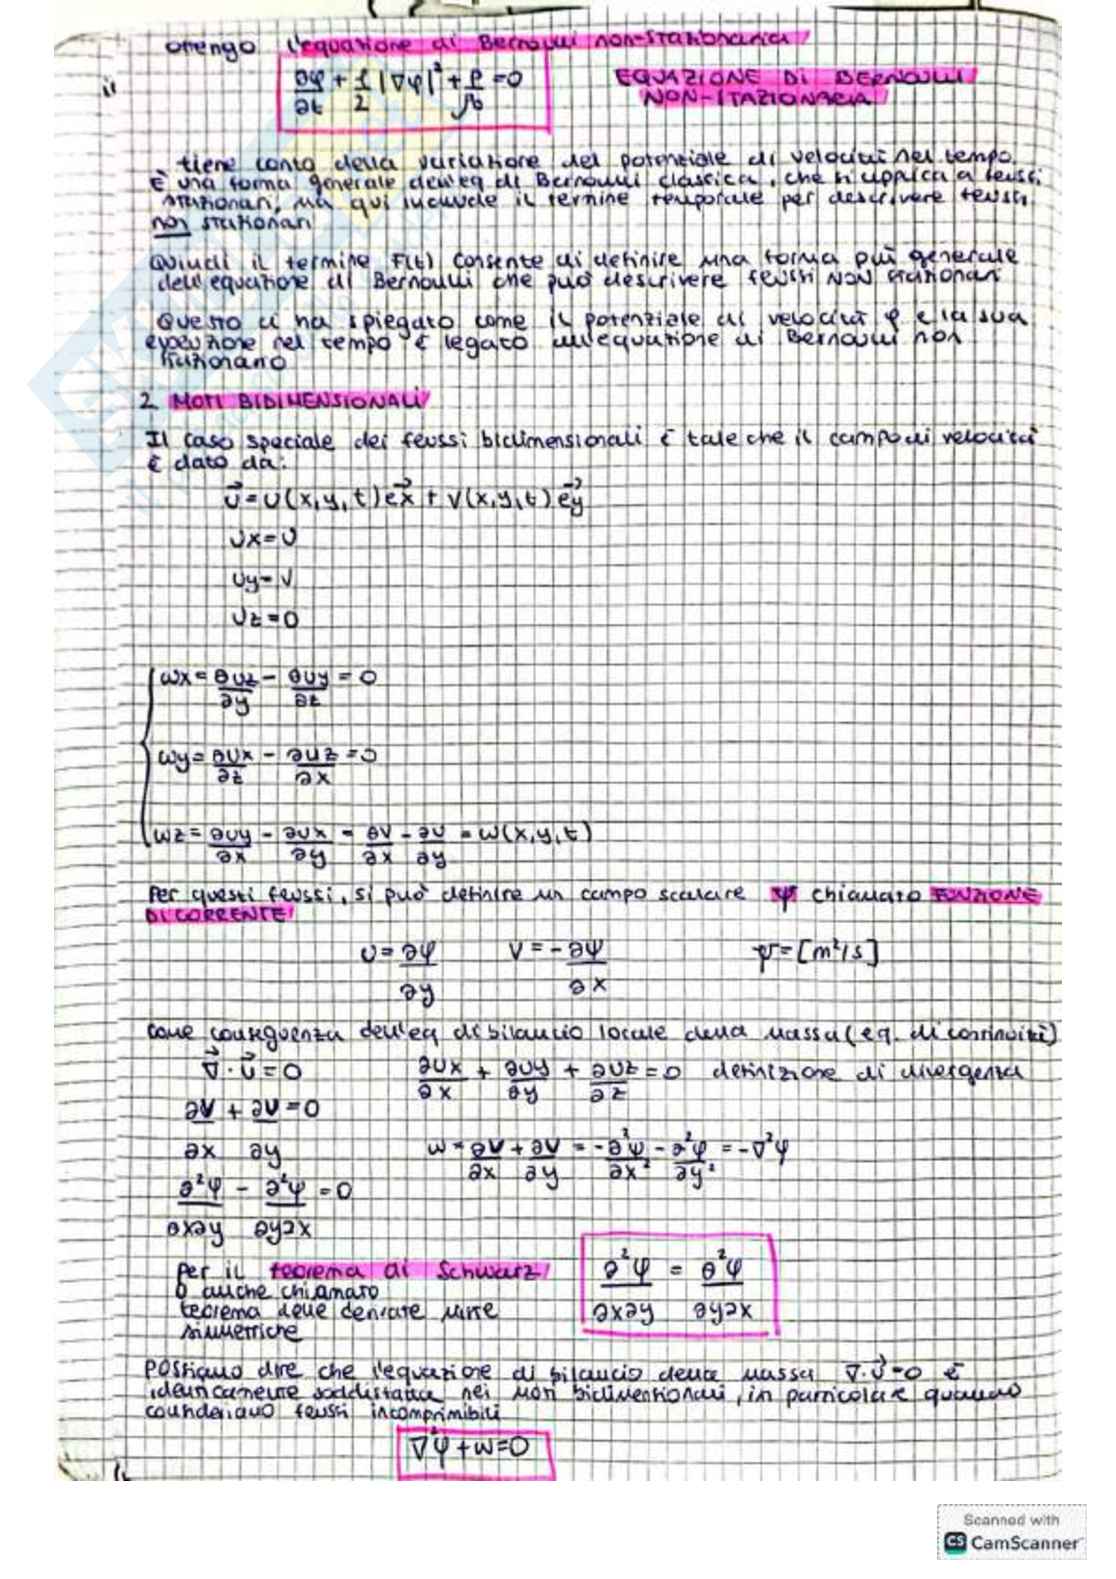 ottengo l'equazione di Bernoulli non-stazionaria
∂φ/∂t + 1/2 |∇φ|² + p/ρ0 = 0 EQUAZIONE DI BERNOULLI
NON-STAZIONARIA
tiene conto della variazione del potenziale di velocità nel tempo.
È una forma generale dell'eq di Bernoulli classica, che si applica a flussi
stazionari, ma qui include il termine temporale per descrivere flussi
non stazionari
Quindi il termine F(t) consente di definire una forma più generale
dell'equazione di Bernoulli che può descrivere flussi NON stazionari
Questo ci ha spiegato come il potenziale di velocità φ e la sua
evoluzione nel tempo è legato all'equazione di Bernoulli non
stazionario
2 MOTI BIDIMENSIONALI
Il caso speciale dei flussi bidimensionali è tale che il campo di velocità
è dato da:
u⃗ = U(x,y,t) e⃗x + V(x,y,t) e⃗y
Ux = U
Uy = V
Uz = 0
ωx = ∂Uz/∂y - ∂Uy/∂z = 0
ωy = ∂Ux/∂z - ∂Uz/∂x = 0
ωz = ∂Uy/∂x - ∂Ux/∂y = ∂V/∂x - ∂U/∂y = ω(x,y,t)
Per questi flussi, si può definire un campo scalare ψ chiamato FUNZIONE
DI CORRENTE
U = ∂ψ/∂y V = - ∂ψ/∂x ψ = [m²/s]
come conseguenza dell'eq di bilancio locale della massa (eq. di continuità)
∇⃗ · u⃗ = 0 ∂Ux/∂x + ∂Uy/∂y + ∂Uz/∂z = 0 definizione di divergenza
∂U/∂x + ∂V/∂y = 0
ω = ∂V/∂x + ∂V/∂y = - ∂²ψ/∂x² - ∂²ψ/∂y² = - ∇²ψ
∂²ψ/∂x∂y - ∂²ψ/∂y∂x = 0
Per il teorema di Schwarz
o anche chiamato
teorema delle derivate miste
simmetriche
∂²ψ/∂x∂y = ∂²ψ/∂y∂x
Possiamo dire che l'equazione di bilancio della massa ∇·u⃗ = 0 è
identicamente soddisfatta nei moti bidimensionali, in particolare quando
consideriamo flussi incomprimibili
∇²ψ + ω = 0
Scanned with
CS CamScanner